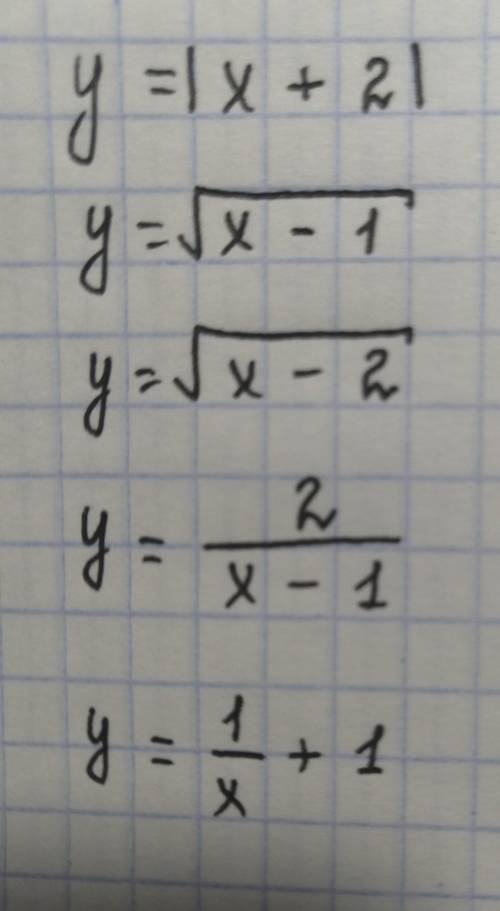 y = |x + 2|
y = √(x - 1)
y = √(x - 2)
y = 2/(x - 1)
y = 1/x + 1